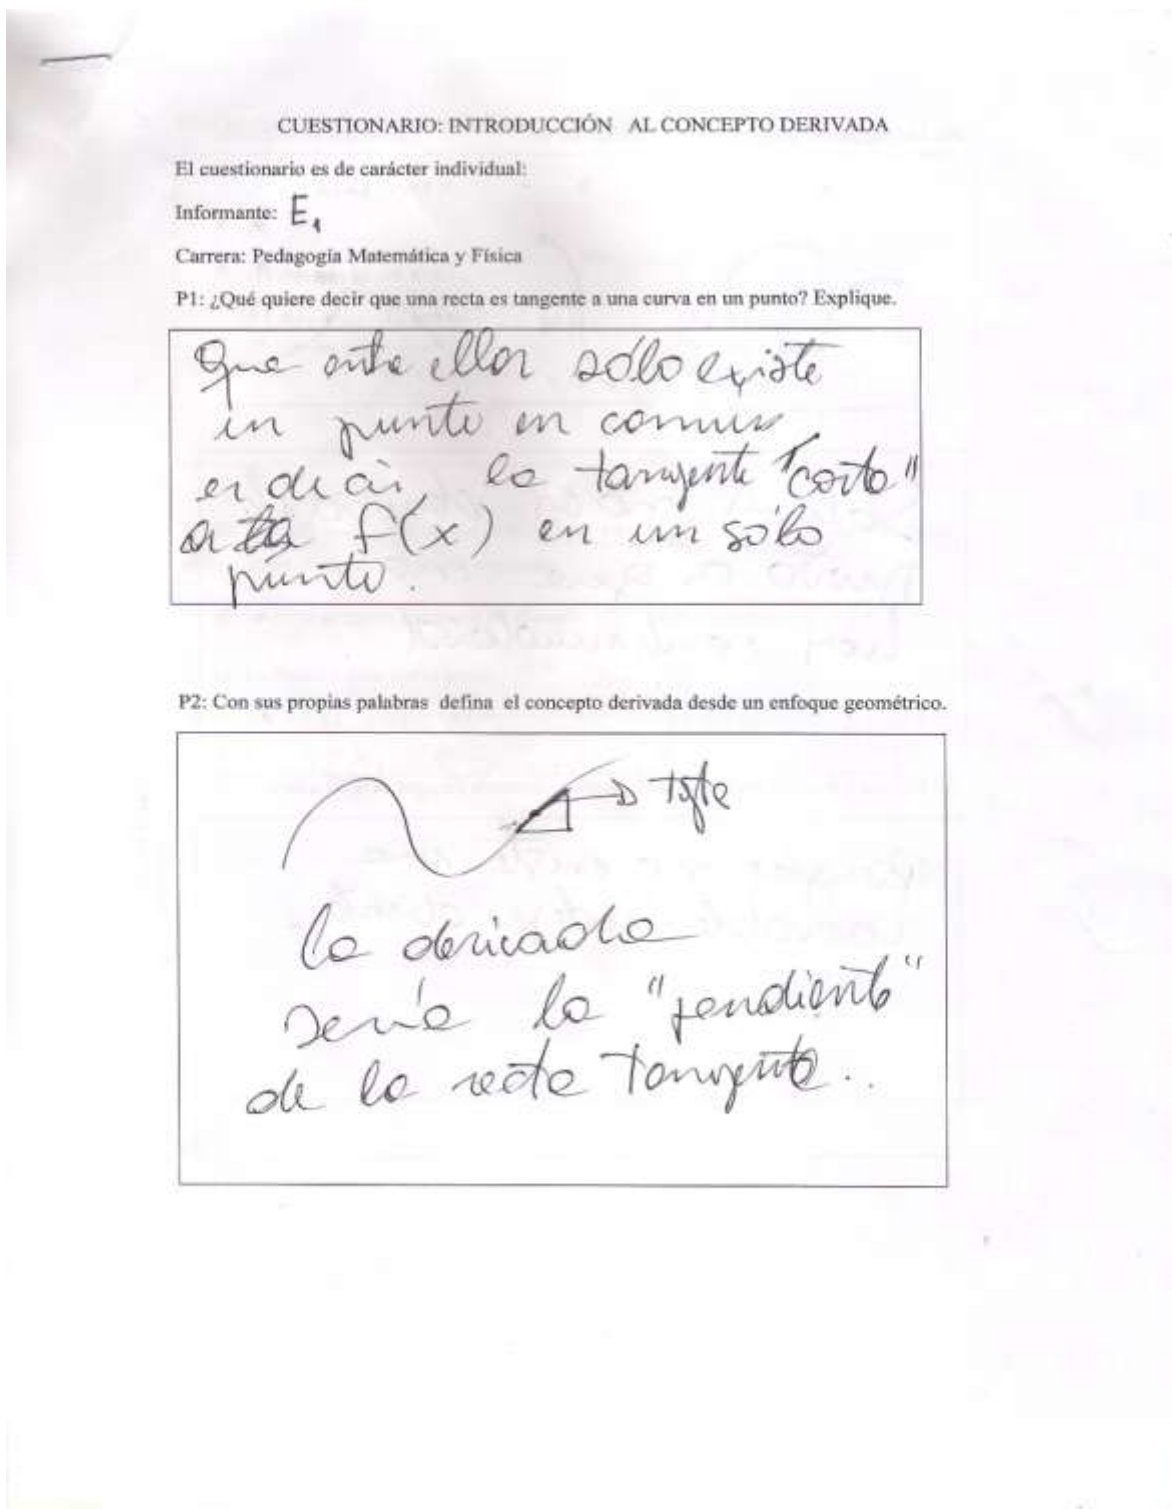 CUESTIONARIO: INTRODUCCIÓN AL CONCEPTO DERIVADA
El cuestionario es de carácter individual:
Informante: E1
Carrera: Pedagogía Matemática y Física
P1: ¿Qué quiere decir que una recta es tangente a una curva en un punto? Explique.
Que entre ellas sólo existe
un punto en comun
es decir, la tangente "corta"
a la f(x) en un sólo
punto.
P2: Con sus propias palabras defina el concepto derivada desde un enfoque geométrico.
Tgte
la derivada
sería la "pendiente"
de la recta tangente..